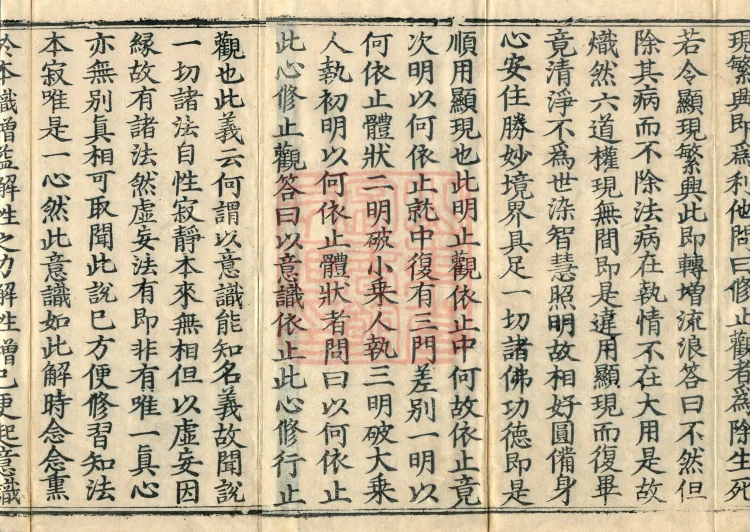 現繁興即爲利他問曰修止觀者爲除生死
若令顯現繁興此即轉增流浪答曰不然但
除其病而不除法病在執情不在大用是故
熾然六道權現無間即是違用顯現而復畢
竟清淨不爲世染智慧照明故相好圓備身
心安住勝妙境界具足一切諸佛功德即是
順用顯現也此明止觀依止中何故依止竟
次明以何依止就中復有三門差別一明以
何依止體狀二明破小乗人執三明破大乗
人執初明以何依止體狀者問曰以何依止
此心修止觀答曰以意識依止此心修行止
觀也此義云何謂以意識能知名義故聞說
一切諸法自性寂靜本來無相但以虛妄因
緣故有諸法然虛妄法有即非有唯一真心
亦無別真相可取聞此說已方便修習知法
本寂唯是一心然此意識如此解時念念熏
於本識增益解性之力解性增已更起意識